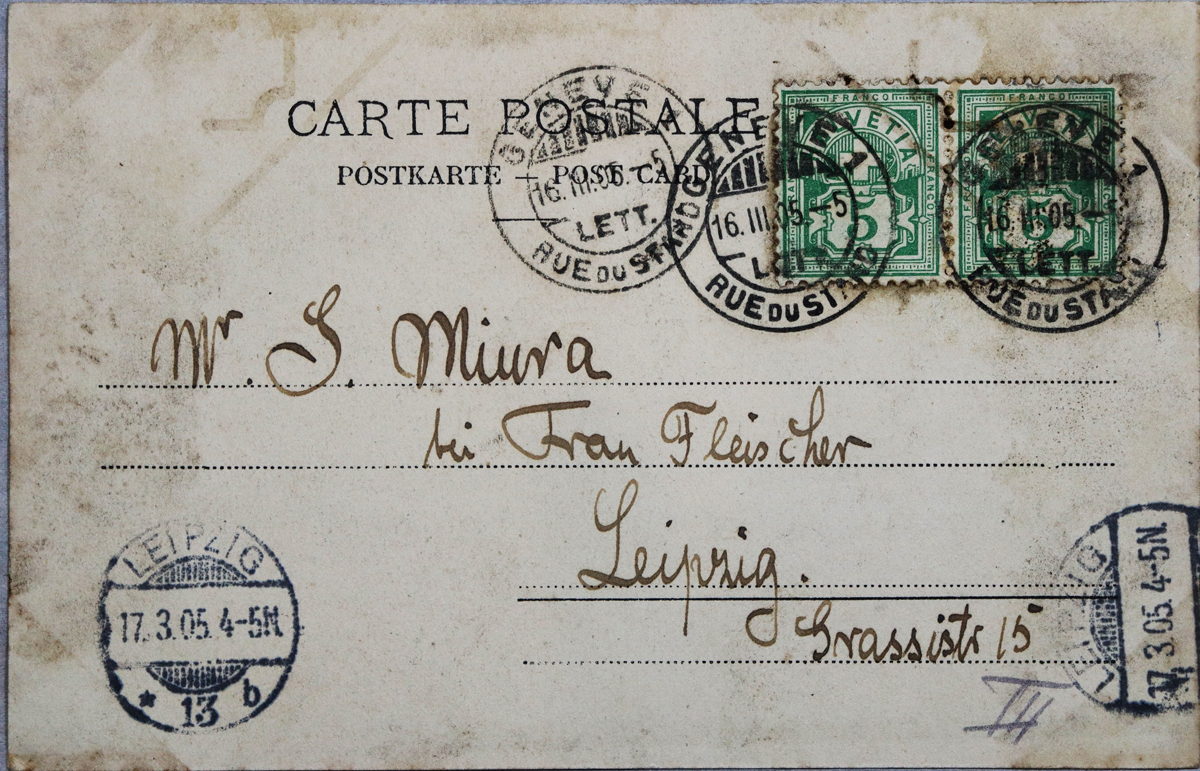 CARTE POSTALE
POSTKARTE — POST CARD
GENÈVE
16.III.05.-5
LETT.
RUE DU STAND
GENÈVE 1
16.III.05.-5
LETT.
RUE DU STAND
FRANCO
HELVETIA
FRANCO
5
GENÈVE 1
16.III.05.-5
LETT.
RUE DU STAND
FRANCO
FRANCO
5
Mr. S. Miura
bei Frau Fleischer
Leipzig.
Grassistr 15
III
LEIPZIG
17.3.05.4-5N.
* 13 b
LEIPZIG
17.3.05.4-5N.